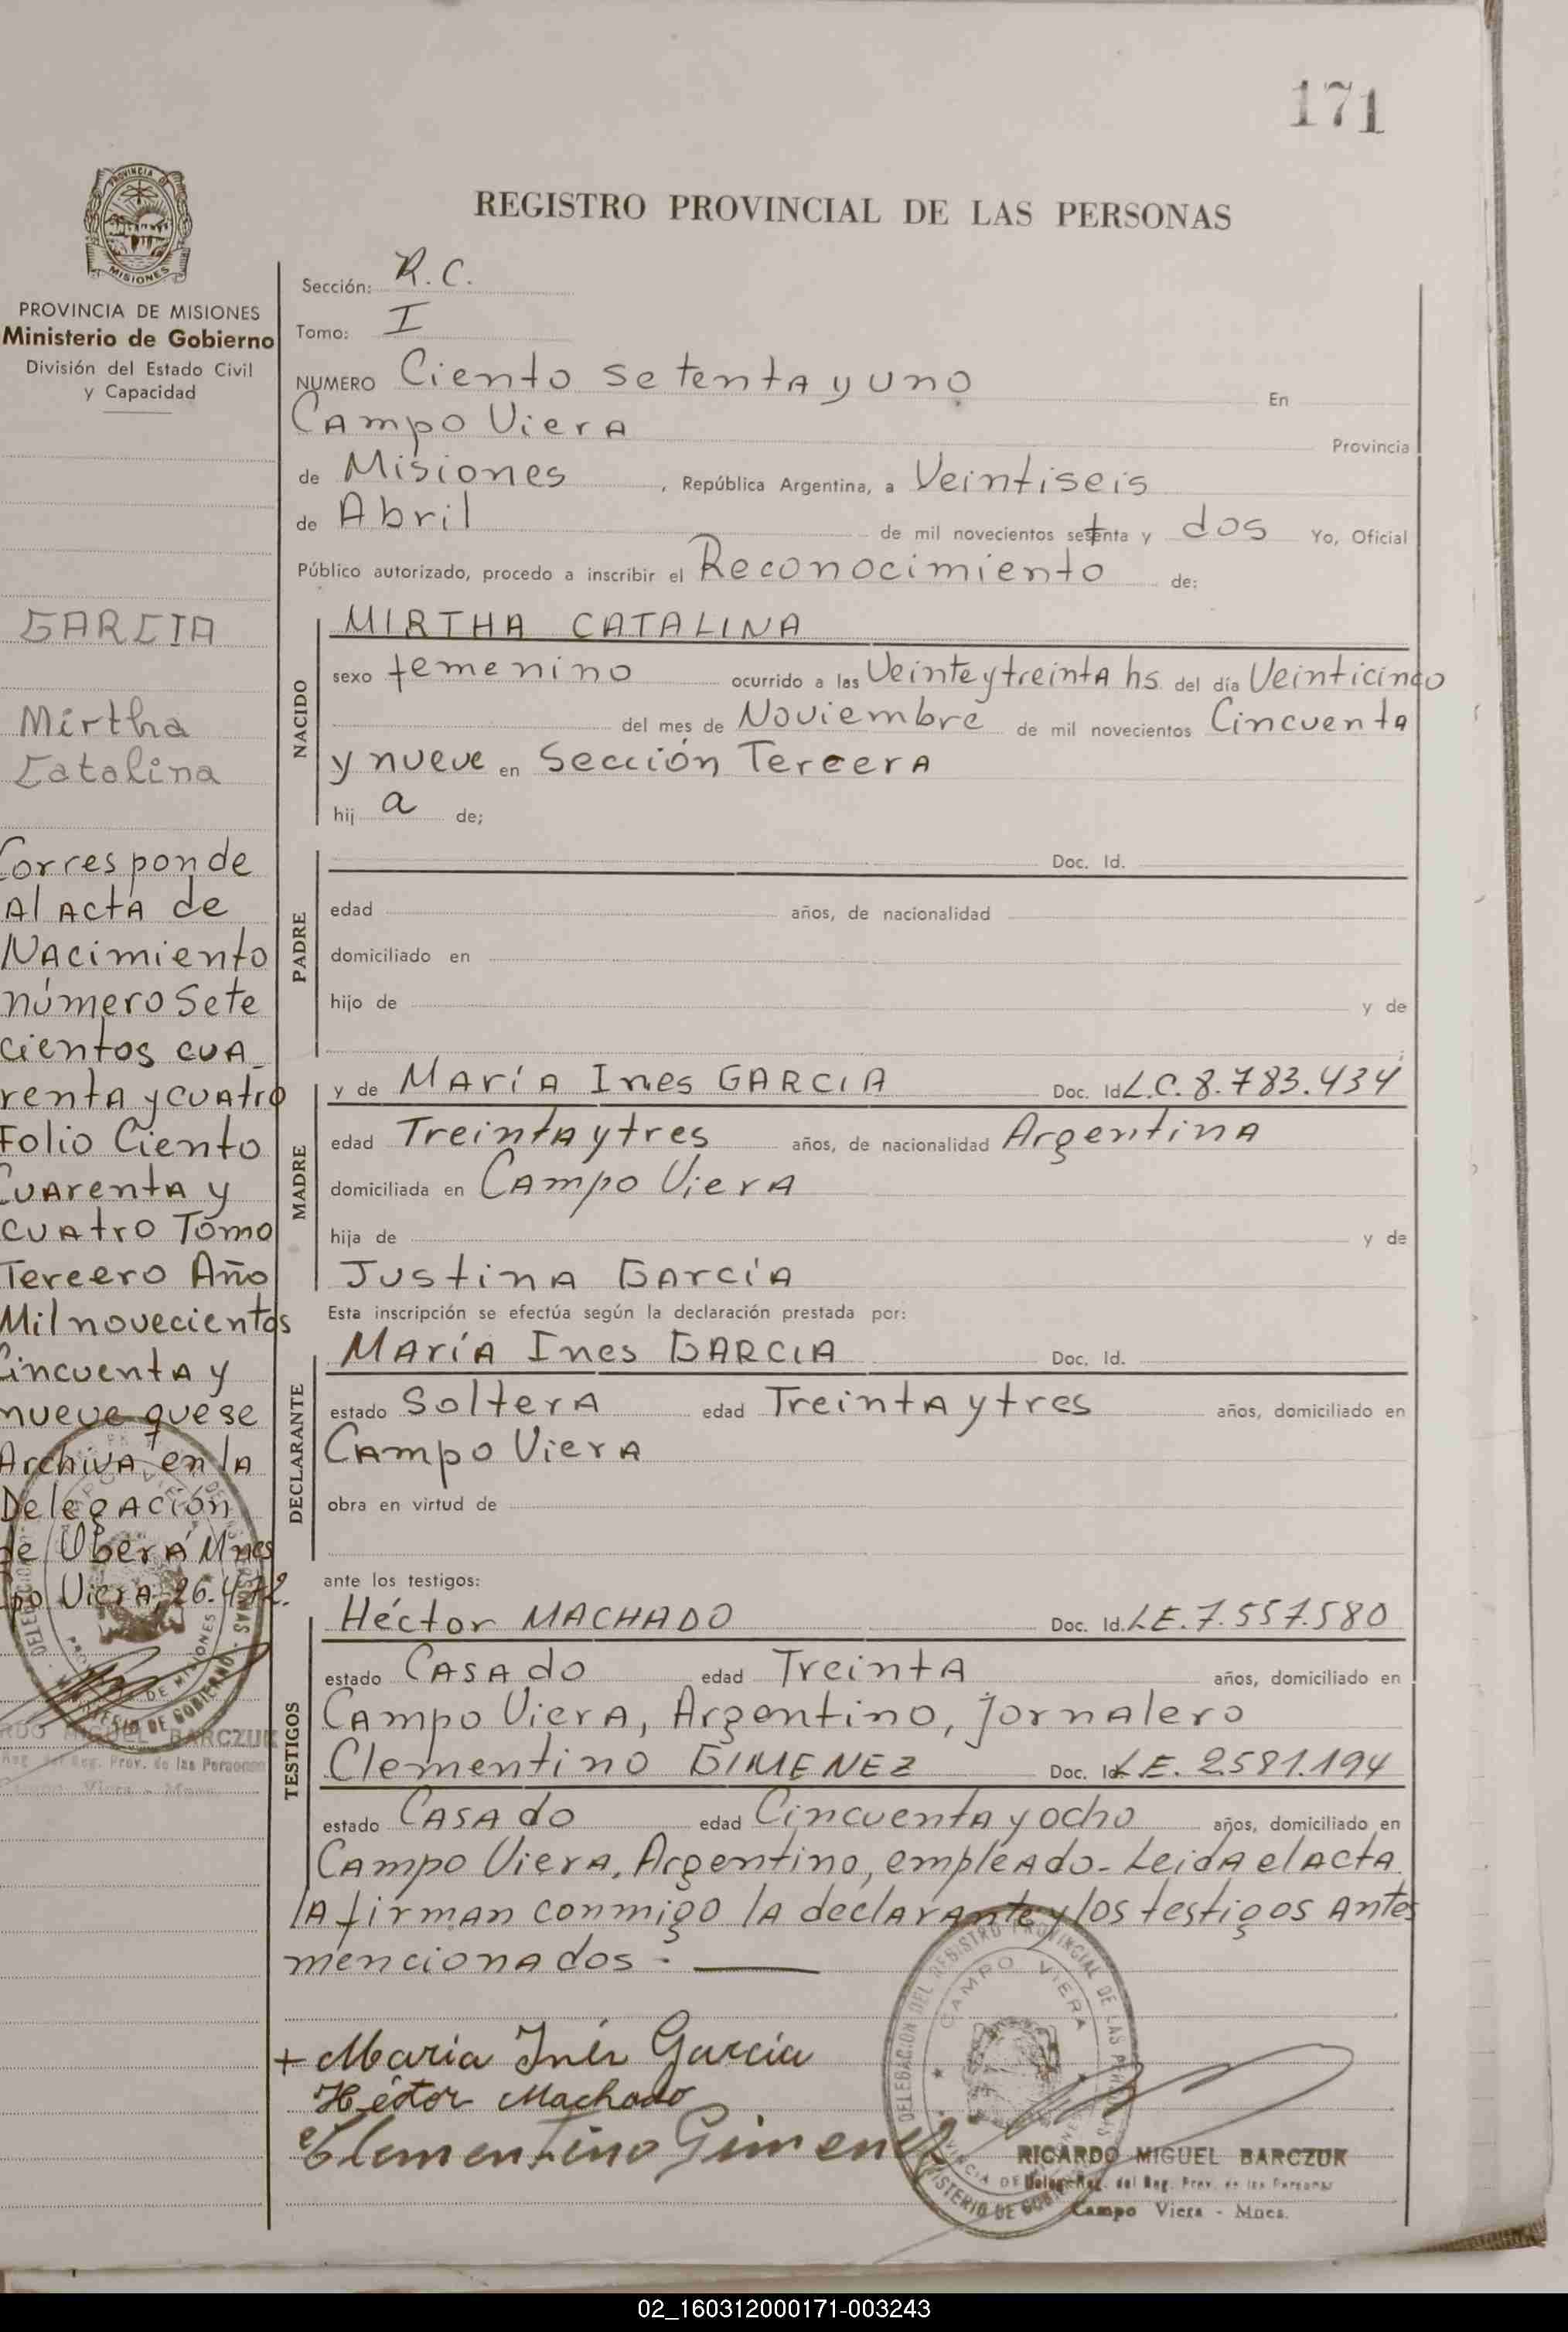 171
REGISTRO PROVINCIAL DE LAS PERSONAS
PROVINCIA DE MISIONES
Ministerio de Gobierno
División del Estado Civil
y Capacidad
GARCIA
Mirtha
Catalina
Corresponde
Al ActA de
NAcimiento
número Sete
cientos cuA_
rentA y cuAtro
Folio Ciento
CuArentA y
cuAtro Tomo
Tercero Año
Mil novecientos
CincuentA y
nueve que se
ArchivA en lA
DelegAción
de Oberá Mnes
po VierA, 26.4.72.
MIGUEL BARCZUK
Reg. del Reg. Prov. de las Personas
Campo Viera - Mnes.
Sección: R.C.
Tomo: I
NUMERO Ciento setentA y uno En
CAmpo VierA Provincia
de Misiones , República Argentina, a Veintiseis
de Abril de mil novecientos setenta y dos Yo, Oficial
Público autorizado, procedo a inscribir el Reconocimiento de:
NACIDO
MIRTHA CATALINA
sexo femenino ocurrido a las Veinte y treintA hs. del día Veinticinco
del mes de Noviembre de mil novecientos CincuentA
y nueve en Sección TercerA
hij a de;
PADRE
Doc. Id.
edad años, de nacionalidad
domiciliado en
hijo de y de
;
MADRE
y de MaríA Ines GARCIA Doc. Id L.C. 8.783.434
edad TreintA y tres años, de nacionalidad ArgentinA
domiciliada en CAmpo VierA
hija de y de
JustinA GArcíA
Esta inscripción se efectúa según la declaración prestada por:
DECLARANTE
MAríA Ines GARCIA Doc. Id.
estado SolterA edad TreintA y tres años, domiciliado en
CAmpo VierA
obra en virtud de
ante los testigos:
TESTIGOS
Héctor MACHADO Doc. Id. LE. 7.557.580
estado CASAdo edad TreintA años, domiciliado en
CAmpo VierA, Argentino, jornAlero
Clementino GIMENEZ Doc. Id. L.E. 2581.194
estado CASAdo edad CincuentA y ocho años, domiciliado en
CAmpo VierA, Argentino, empleAdo- Leida el ActA
lA firmAn conmigo lA declArAnte y los testigos Antes
mencionAdos -
+ María Inés García
Héctor Machado
Clementino Gimenez
DELEGACION DEL REGISTRO PROVINCIAL DE LAS PERSONAS
CAMPO VIERA
PROVINCIA DE MISIONES
MINISTERIO DE GOBIERNO
RICARDO MIGUEL BARCZUK
Deleg. Reg. del Reg. Prov. de las Personas
Campo Viera - Mnes.
02_160312000171-003243